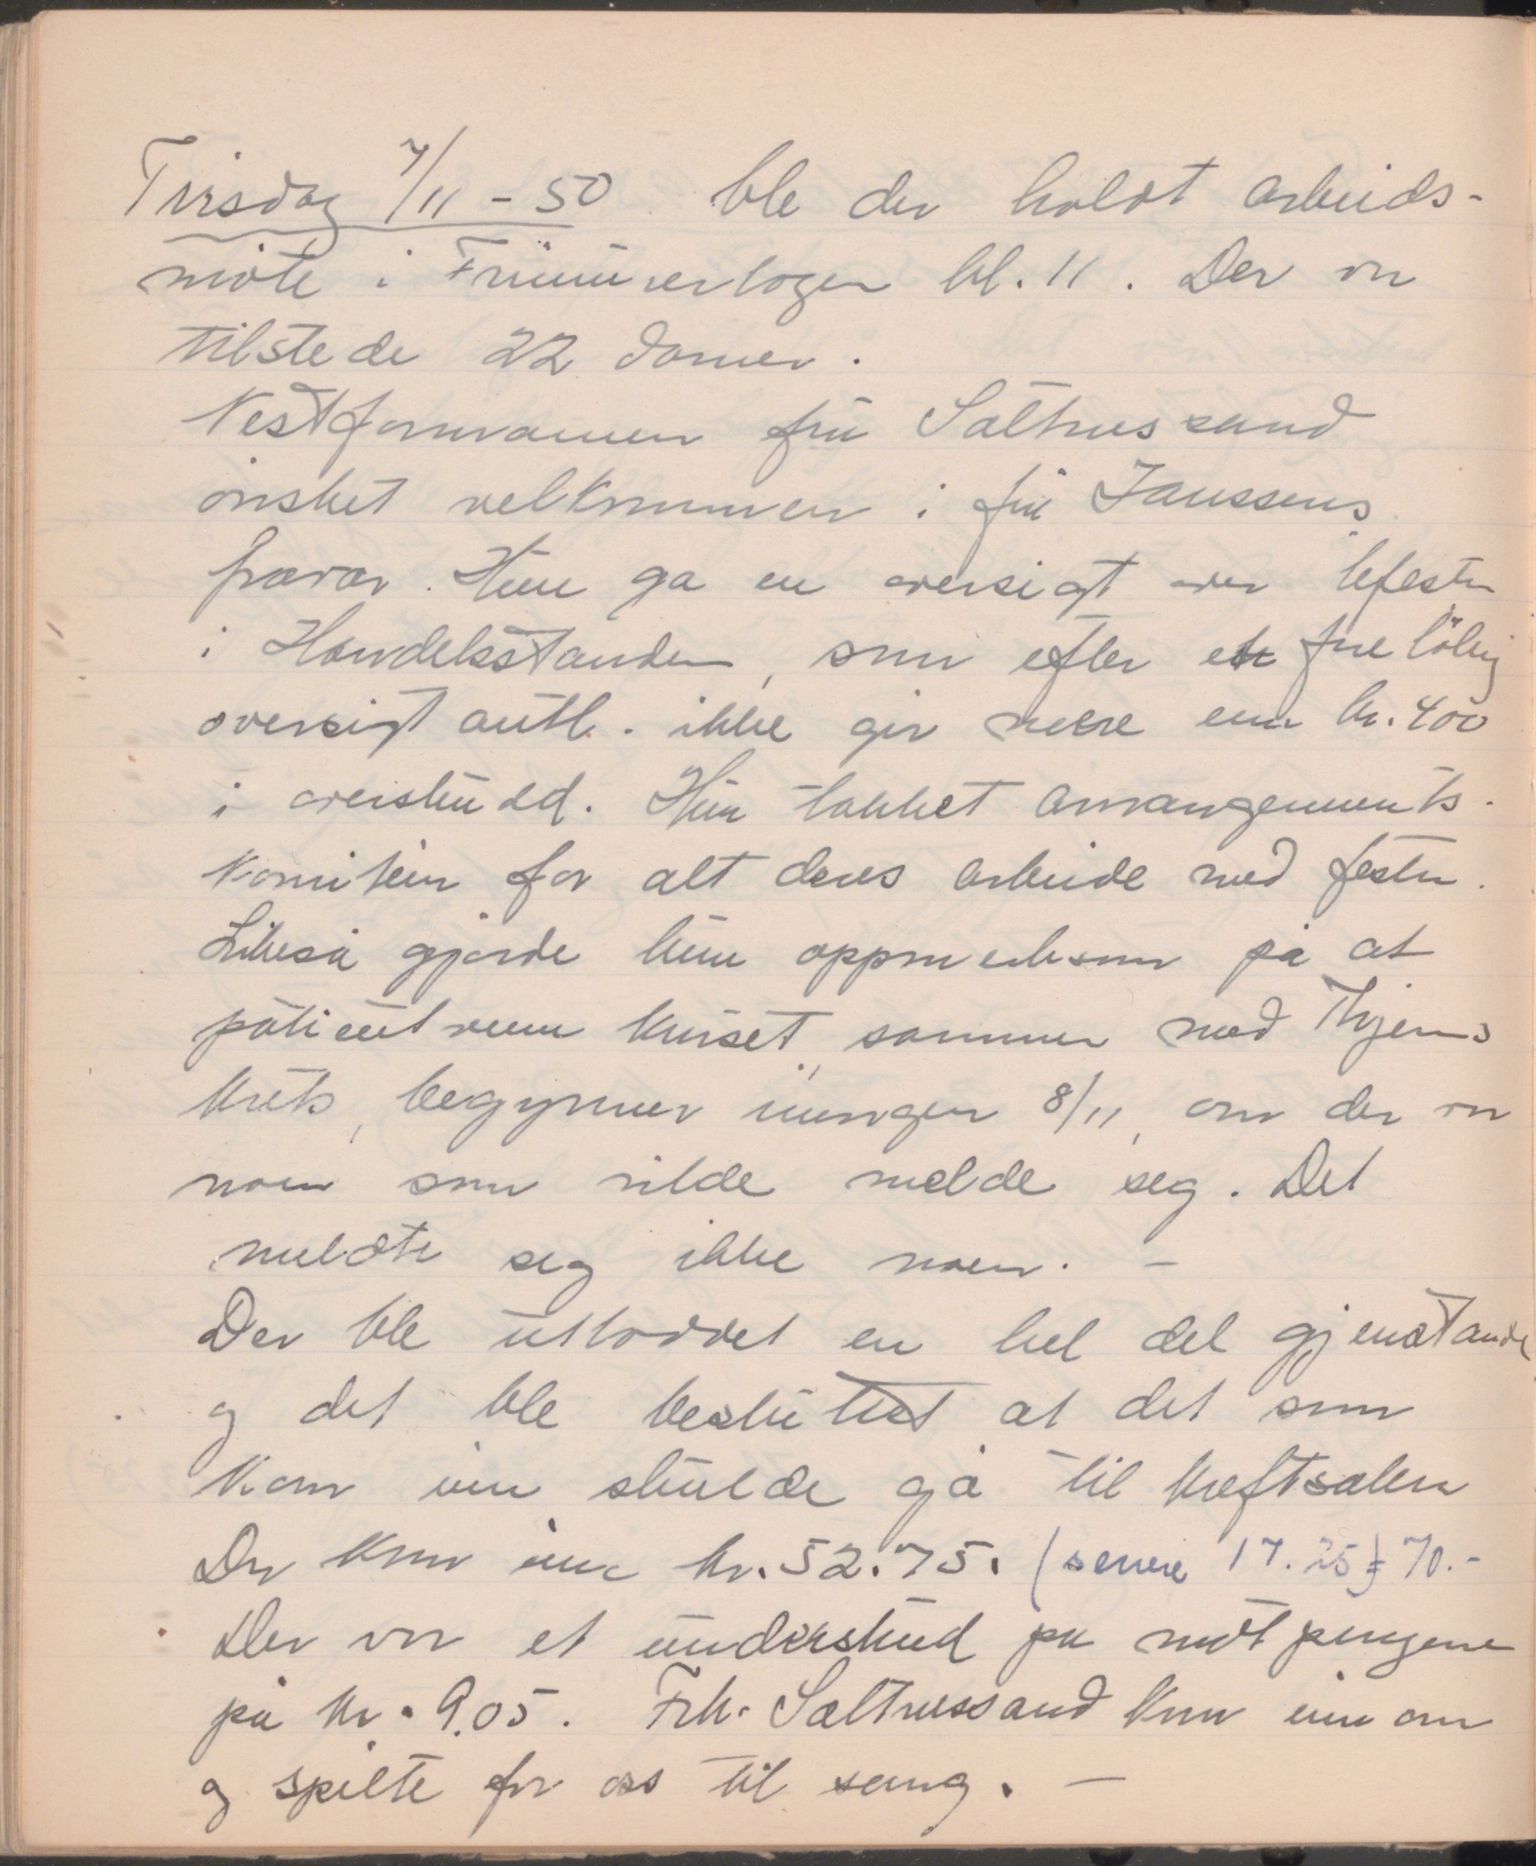 Tirsdag 7/11 - 50 ble der holdt arbeids-
møte i Frimurerlogen kl. 11. Der var
tilstede 22 damer.
Nestformannen fru Salthussand
ønsket velkommen i fru Janssens
fravær. Hun ga en oversigt over lefesten
i Handelsstanden, som efter en foreløbig
oversigt antl. ikke gir mere enn kr. 400
i overskudd. Hun takket arrangements-
komitéen for alt deres arbeide med festen.
Likeså gjorde hun oppmerksom på at
patientvenn kurset, sammen med Hjems
krets, begynner imorgen 8/11, om der var
noen som vilde melde seg. Det
meldte seg ikke noen. -
Der ble utloddet en hel del gjenstande
og det ble besluttet at det som
kom inn skulde gå til kreftsaken
Der kom inn kr. 52.75. (senere 17.25) = 70.-
Der var et underskud på møtpengene
på kr. 9.05. Frk. Salthussand kom innom
og spilte for oss til sang. -